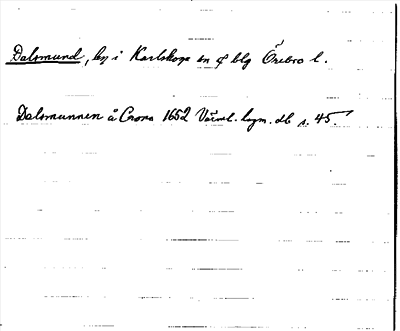 Dalsmund, by i Karlskoga sn o blg Örebro l.
Dalsmunnen å Crono 1652 Värml. lagm. db s. 45.